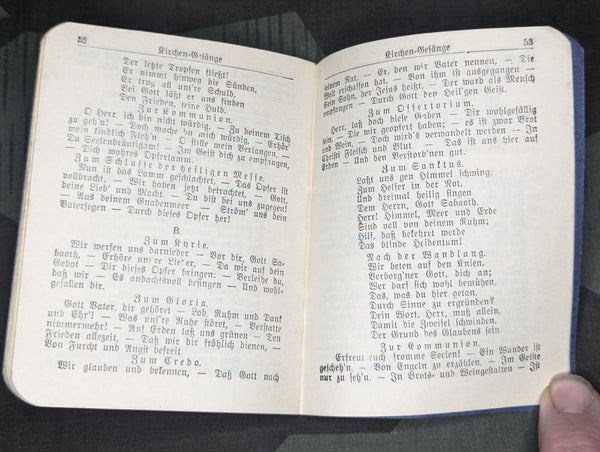 52
Kirchen-Gesänge
Der letzte Tropfen fließt!
Er nimmt hinweg die Sünden,
Er trug all uns're Schuld,
Bei Gott läßt er uns finden
Den Frieden, seine Huld.
Zur Kommunion.
O Herr, ich bin nicht würdig, — Zu deinem Tisch
zu geh'n! — Doch mache du mich würdig, — Erhör'
mein kindlich Fleh'n! — O stille mein Verlangen, —
Du Seelenbräutigam! — Im Geist dich zu empfangen,
— Dich, wahres Opferlamm.
Zum Schlusse der heiligen Messe.
Nun ist das Lamm geschlachtet, — Das Opfer ist
vollbracht, — Wir haben jetzt betrachtet, — Gott,
deine Lieb' und Macht. — Du bist bei uns zugegen!
— Aus deinem Gnadenmeer — Ström' uns dein
Vatersegen — Durch dieses Opfer her!
B.
Zum Kyrie.
Wir werfen uns darnieder — Vor dir, Gott Sa-
baoth, — Erhöre uns're Lieder, — Da wir auf dein
Gebot — Dir dieses Opfer bringen; — Verleihe du,
daß wir — Es andachtsvoll besingen — Und wohl-
gefallen dir.
Zum Gloria.
Gott Vater, dir gehöret — Lob, Ruhm und Dank
und Ehr'! — Was uns're Ruhe störet, — Verstatte
nimmermehr! — Auf Erden laß uns grünen — Den
Frieden allezeit, — Daß wir dir fröhlich dienen, —
Von Furcht und Angst befreit
Zum Credo.
Wir glauben und bekennen, — Daß Gott nach
Kirchen-Gesänge
53
seinem Rat, — Er, den wir Vater nennen, — Die
Welt erschaffen hat. — Von ihm ist ausgegangen —
Sein Sohn, der Jesus heißt, — Der ward als Mensch
empfangen — Durch Gott den Heil'gen Geist.
Zum Offertorium.
Herr, laß doch diese Gaben — Dir wohlgefällig
sein, — Die wir geopfert haben; — es ist zwar Brot
und Wein, — Doch wird's verwandelt werden — In
Christi Fleisch und Blut — Das ist uns hier auf
Erden — Und den Verstorb'nen gut.
Zum Sanktus.
Laßt uns gen Himmel schwing'
Zum Helfer in der Not,
Und dreimal heilig singen
Dem Herrn, Gott Sabaoth.
Herr! Himmel, Meer und Erde
Sind voll von deinem Ruhm;
Hilf, daß bekehret werde
Das blinde Heidentum!
Nach der Wandlung.
Wir beten auf den Knien,
Verborg'ner Gott, dich an;
Wer darf sich wohl bemühen,
Das, was du hier getan,
Durch Sinne zu ergründen?
Dein Wort, Herr, muß allein,
Damit die Zweifel schwinden,
Der Grund des Glaubens sein.
Zur Kommunion.
Erfreut euch fromme Seelen! — Ein Wunder ist
gescheh'n. — Von Engeln zu erzählen, — Im Geiste
nur zu seh'n. — In Brots- und Weingestalten — Ist